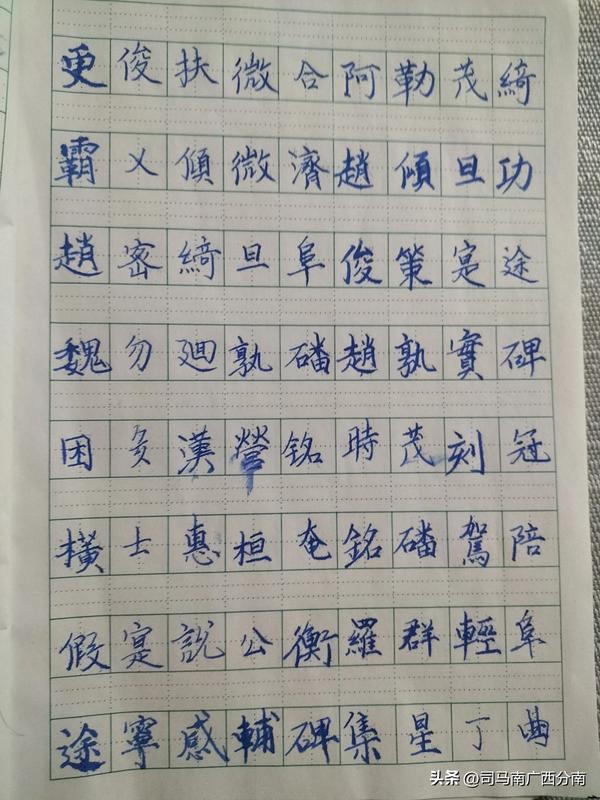 更俊扶微合阿勒茂綺
霸乂傾微濟趙傾旦功
趙密綺旦阜俊策寔途
魏勿廻孰磻趙孰實碑
困多漢營銘時茂刻冠
橫士惠桓奄銘磻駕陪
假寔説公衡羅群輕阜
途寧感輔碑集星丁曲
头条 @司马南广西分南